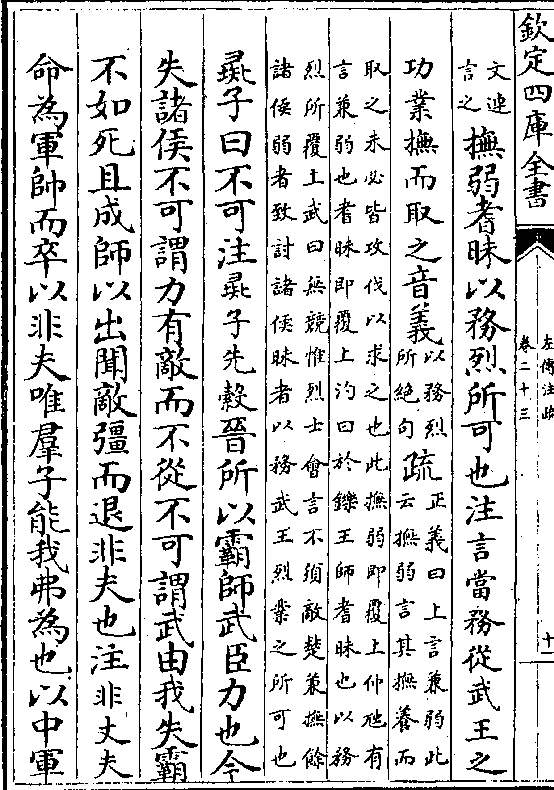 欽定四庫全書
左傳注疏
卷二十三
十
文連
言之
撫弱耆昧以務烈所可也注言當務從武王之
功業撫而取之音義
以務烈
所絶句
疏
正義曰上言兼弱此
云撫弱言其撫養而
取之未必皆攻伐以求之也此撫弱即覆上仲虺有
言兼弱也耆昧即覆上汋曰於鑠王師耆昧也以務
烈所覆上武曰無競惟烈士會言不須敵楚兼撫餘
諸侯弱者致討諸侯昧者以務武王烈業之所可也
彘子曰不可注彘子先縠晉所以霸師武臣力也今
失諸侯不可謂力有敵而不從不可謂武由我失霸
不如死且成師以出聞敵彊而退非夫也注非丈夫
命為軍帥而卒以非夫唯羣子能我弗為也以中軍